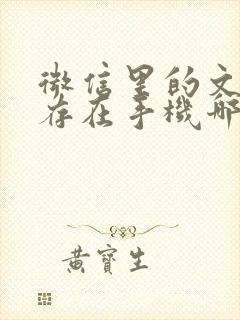 微信里的文
存在手機哪
黃寶生